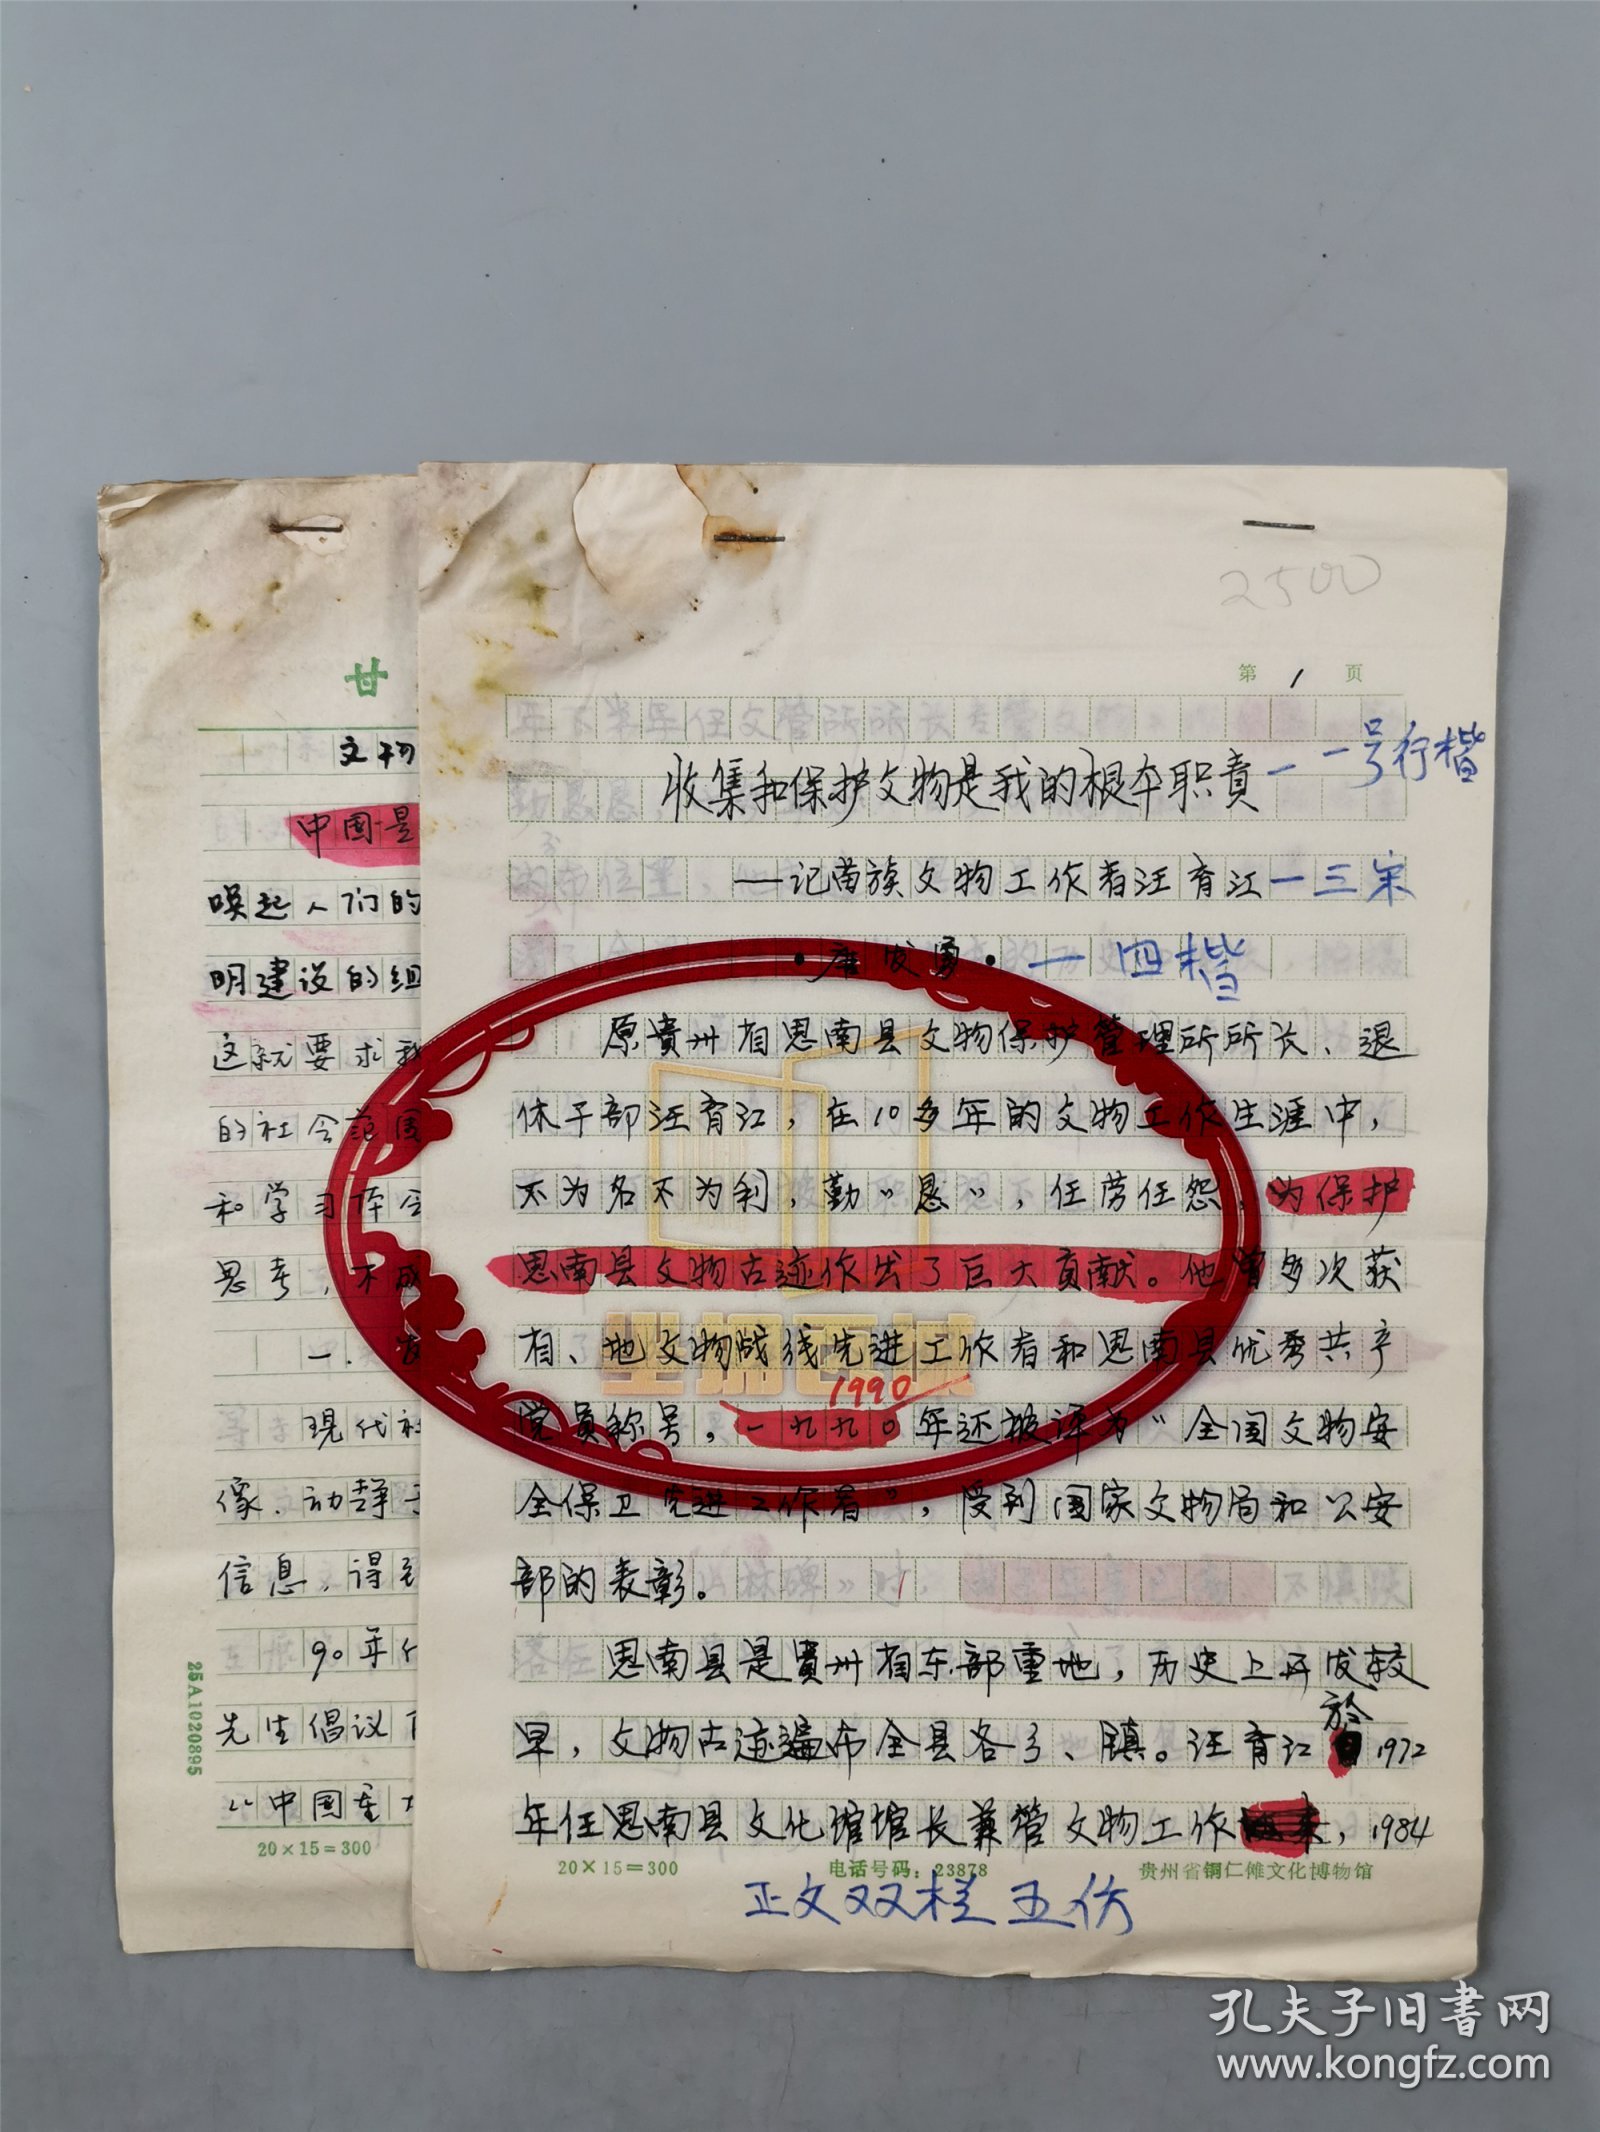 甘
文物
中国是
唤起人们的
明建设的组
这就要求我
的社会范围
和学习
思考，不
一．
现代社
像．动静
信息，得到
90年代
先生倡议
《中国
20×15=300
25A1020895
2500
第 1 页
收集和保护文物是我的根本职责 一一号行楷
——记苗族文物工作者汪育江 一三宋
·唐发勇· 一四楷
原貴州省思南县文物保护管理所所长、退
休干部汪育江，在10多年的文物工作生涯中，
不为名不为利，勤〃恳〃，任劳任怨，为保护
思南县文物古迹作出了巨大貢献。他曾多次获
省、地文物战线先进工作者和思南县优秀共产
1990
党員称号，一九九〇年还被评为“全国文物安
全保卫先进工作者”，受到国家文物局和公安
部的表彰。
思南县是貴州省东部重地，历史上开发较
早，文物古迹遍布全县各乡、镇。汪育江於1972
年任思南县文化馆馆长兼管文物工作，1984
20×15=300 电话号码：23878 贵州省铜仁傩文化博物馆
正文双栏五仿
孔夫子旧书网
www.kongfz.com